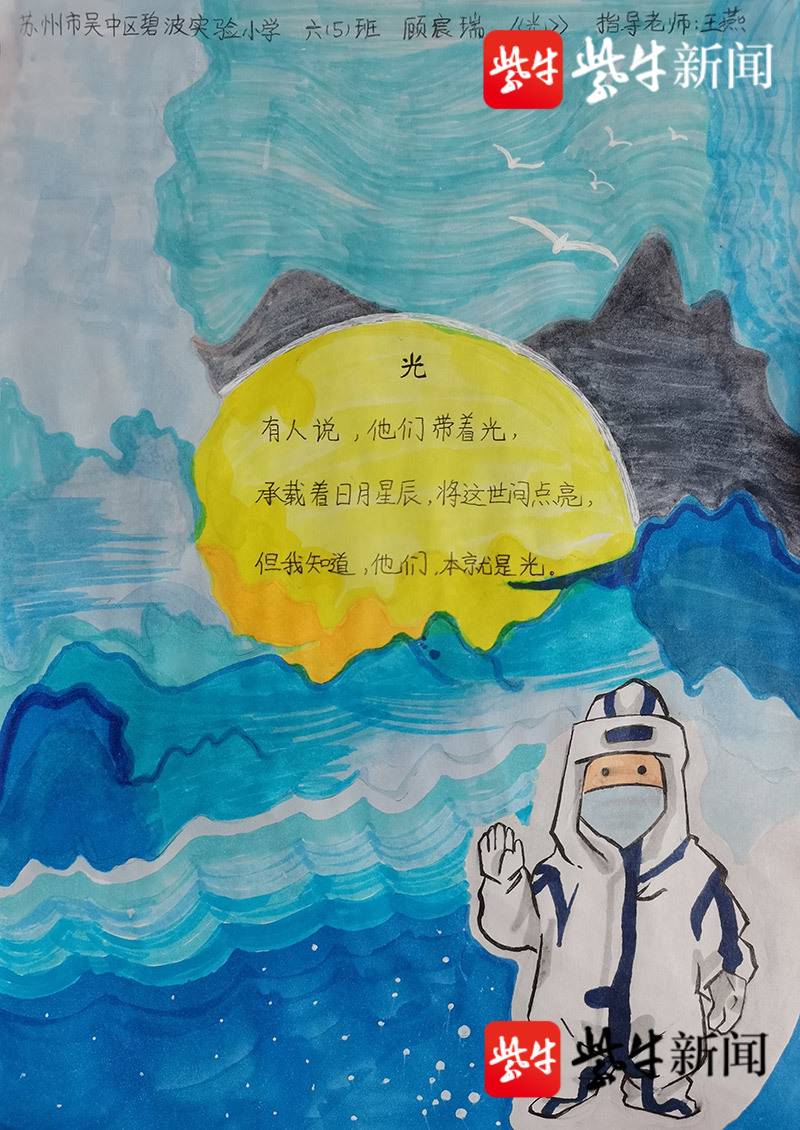 苏州市吴中区碧波实验小学 六(5)班 顾宸瑞 《光》 指导老师:王燕
紫牛 紫牛新闻
光
有人说，他们带着光，
承载着日月星辰，将这世间点亮，
但我知道，他们，本就是光。
紫牛 紫牛新闻